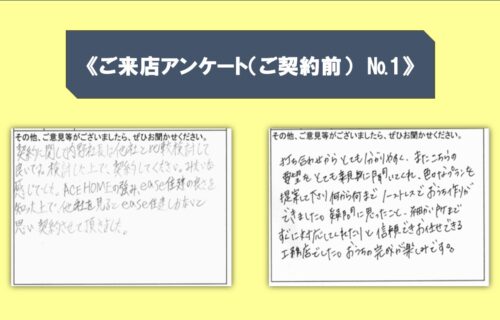 《ご来店アンケート(ご契約前) №1》
その他、ご意見等がございましたら、ぜひお聞かせください。
契約に関して内野社長に他社との比較検討して
良いです。検討した上で、契約してください。みたいな
感じでした。ACE HOMEの強み、ease住建の良さを
知った上で、他社を見るとease住建しかないと
思い契約させて頂きました。
その他、ご意見等がございましたら、ぜひお聞かせください。
打ち合わせからとても分かりやすく、またこちらの
要望もとても親身に聞いてくれ、色々なプランを
提案して下さり何から何までノーストレスでおうち作りが
できました。疑問に思ったこと、細かい所まで
すぐに対応してくれたりと信頼できお任せできる
工務店でした。おうちの完成が楽しみです。